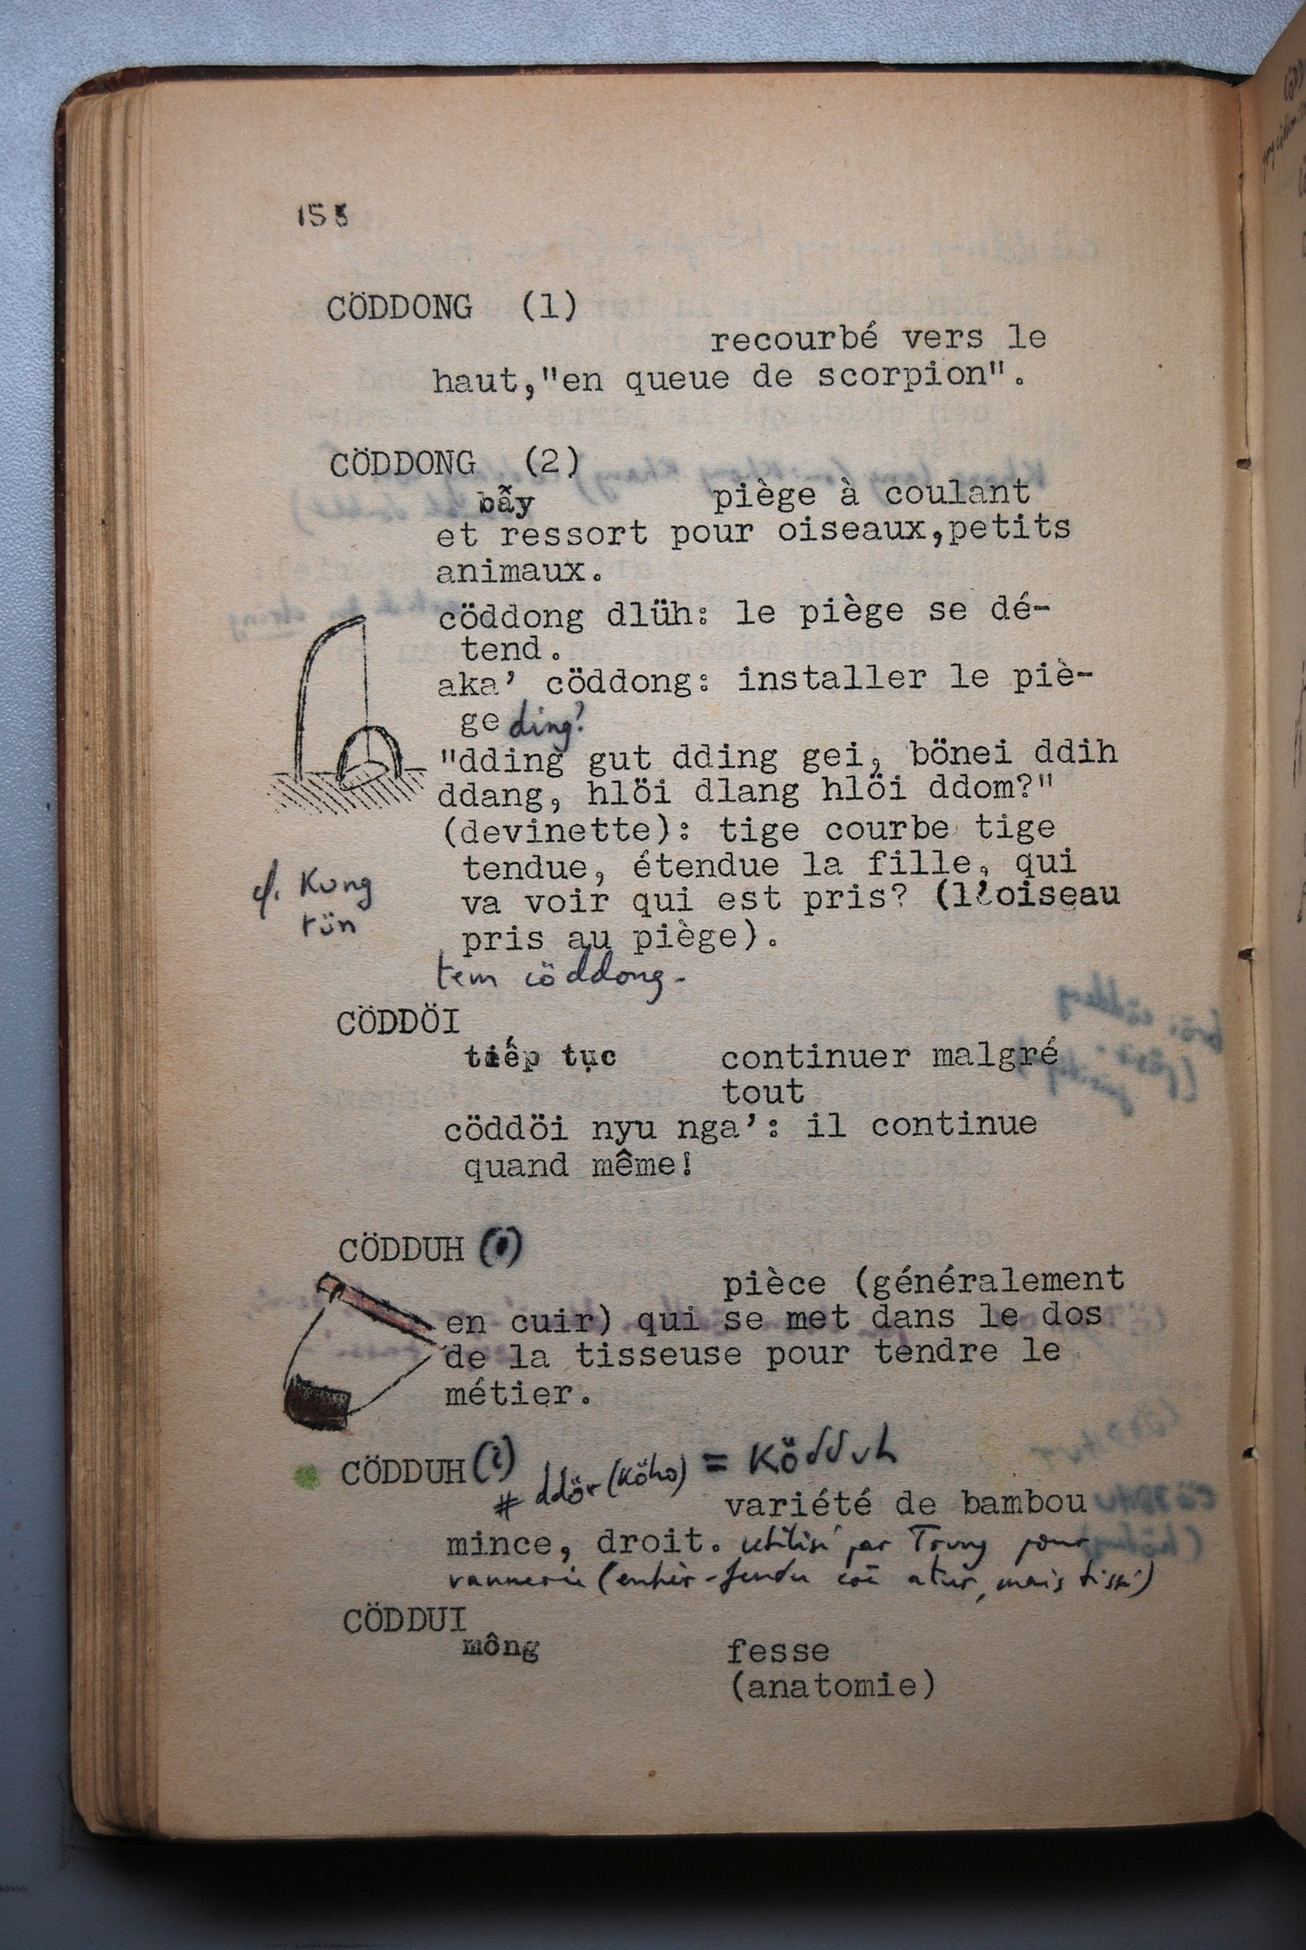 158
CÖDDONG (1)
recourbé vers le
haut,"en queue de scorpion".
CÖDDONG (2)
bẫy piège à coulant
et ressort pour oiseaux,petits
animaux.
cöddong dlüh: le piège se dé-
tend.
aka' cöddong: installer le piè-
ge ding?
"dding gut dding gei, bönei ddih
ddang, hlöi dlang hlöi ddom?"
(devinette): tige courbe tige
tendue, étendue la fille, qui
va voir qui est pris? (l'oiseau
pris au piège).
cf. Kung
rün
tem cöddong-
CÖDDÖI
tiếp tục continuer malgré
tout
cöddöi nyu nga': il continue
quand même!
CÖDDUH
pièce (généralement
en cuir) qui se met dans le dos
de la tisseuse pour tendre le
métier.
CÖDDUH (2) # ddör (Köho) =Ködduh
variété de bambou
mince, droit. utilisé par Trung pour
vannerie (entier-fendu mais tissé)
CÖDDUI
mông fesse
(anatomie)